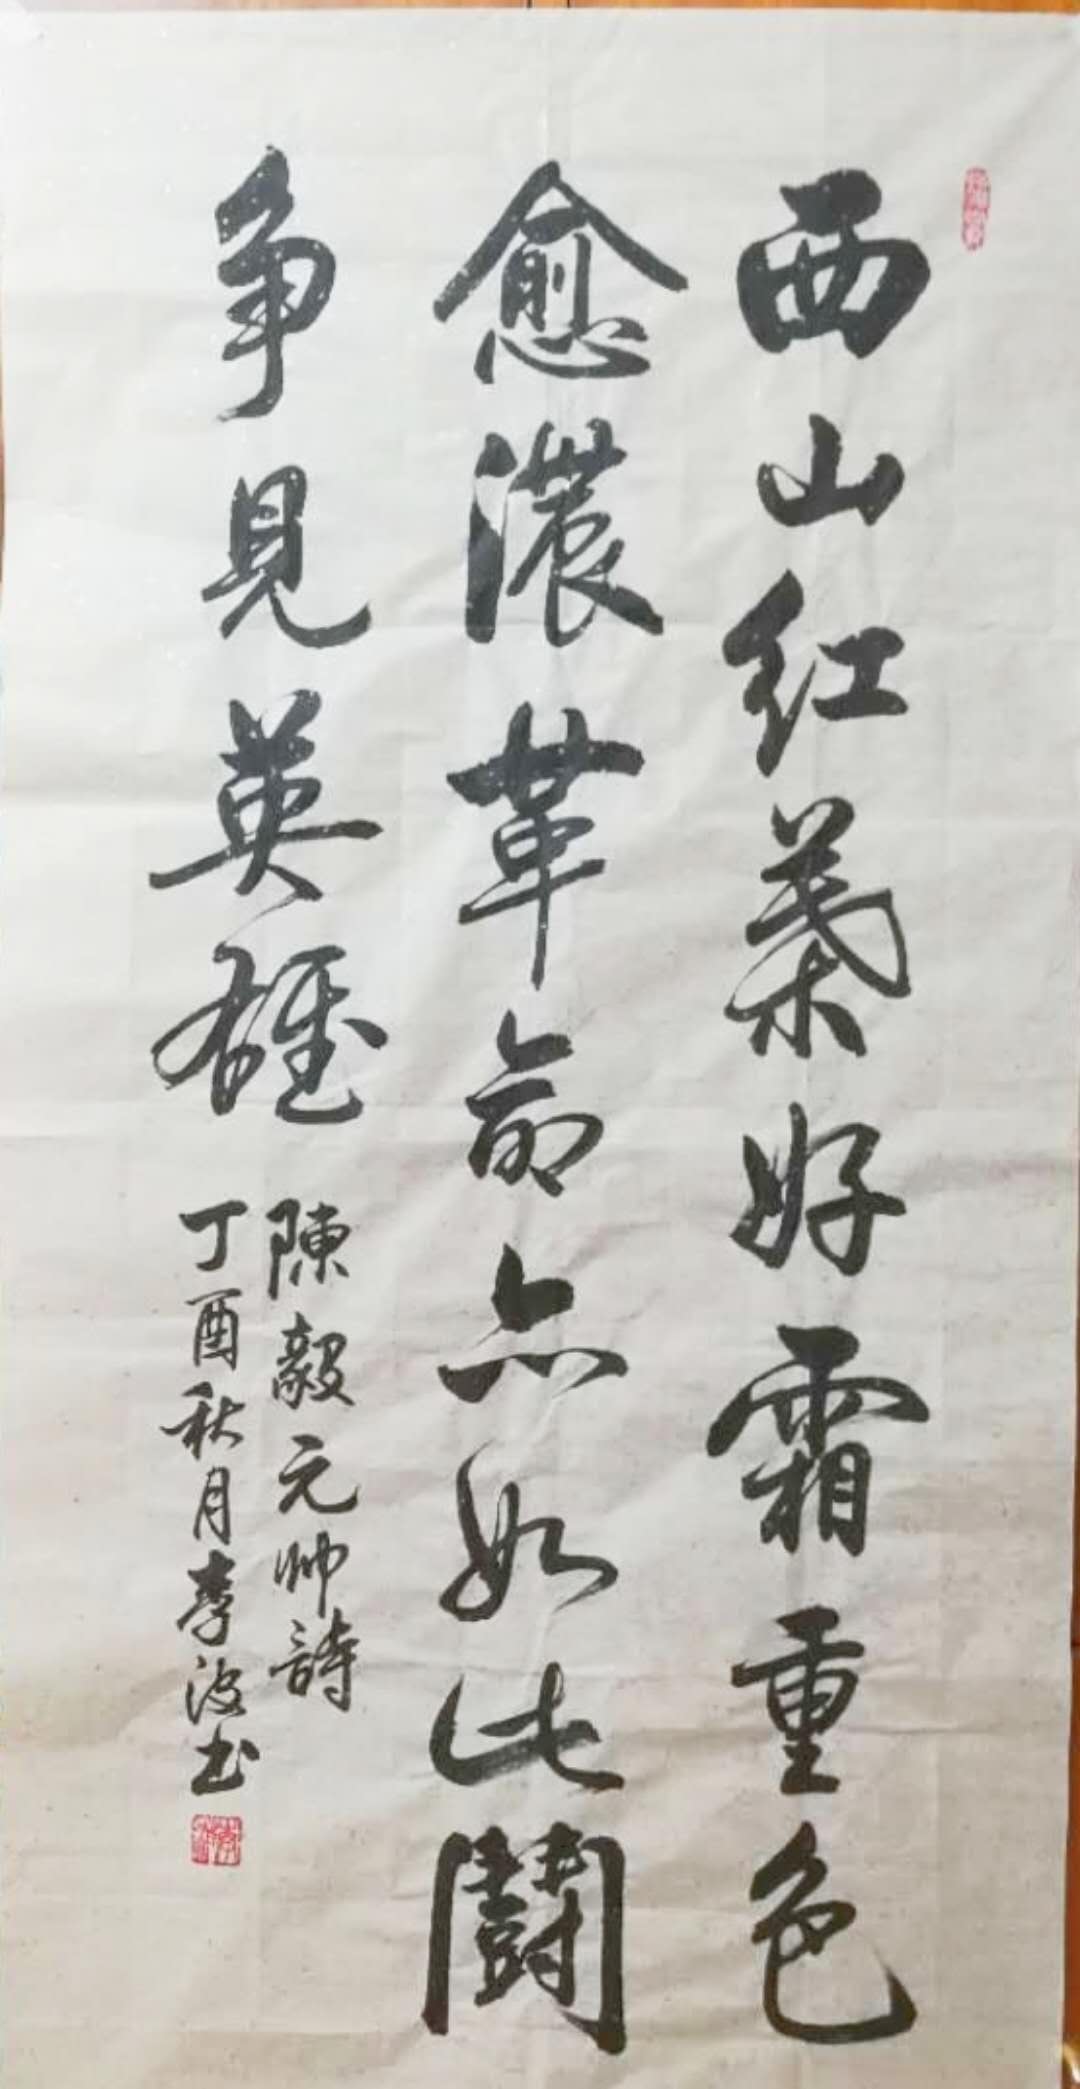 西山红葉好霜重色
愈濃革命亦如此鬪
争見英雄
陳毅元帅詩
丁酉秋月李波书